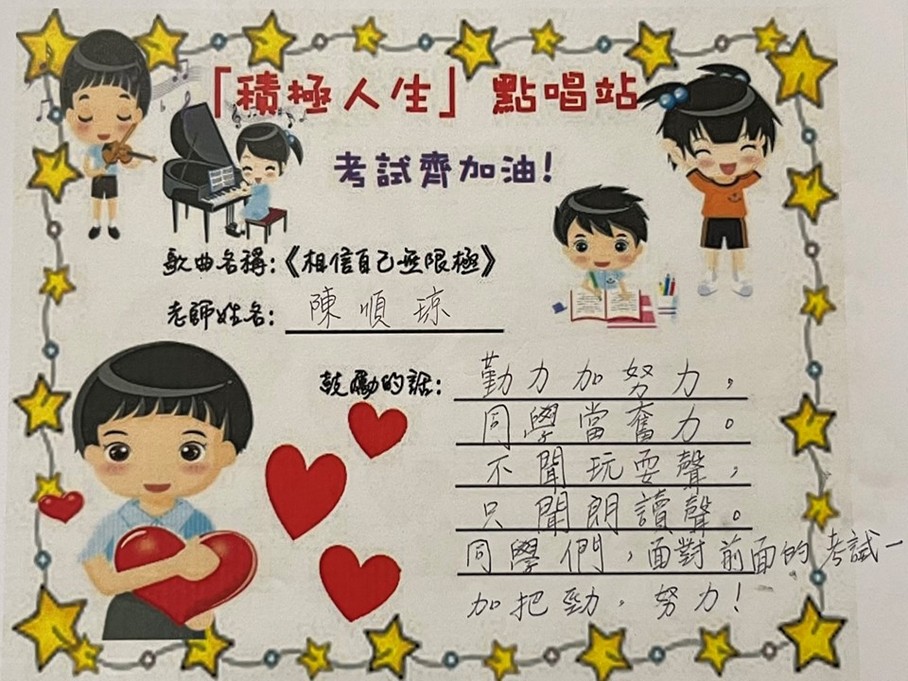 「積極人生」點唱站
考試齊加油!
歌曲名稱:《相信自己無限極》
老師姓名: 陳順琼
鼓勵的話: 勤力加努力,
同學當奮力。
不聞玩耍聲,
只聞朗讀聲。
同學們,面對前面的考試一
加把勁,努力!